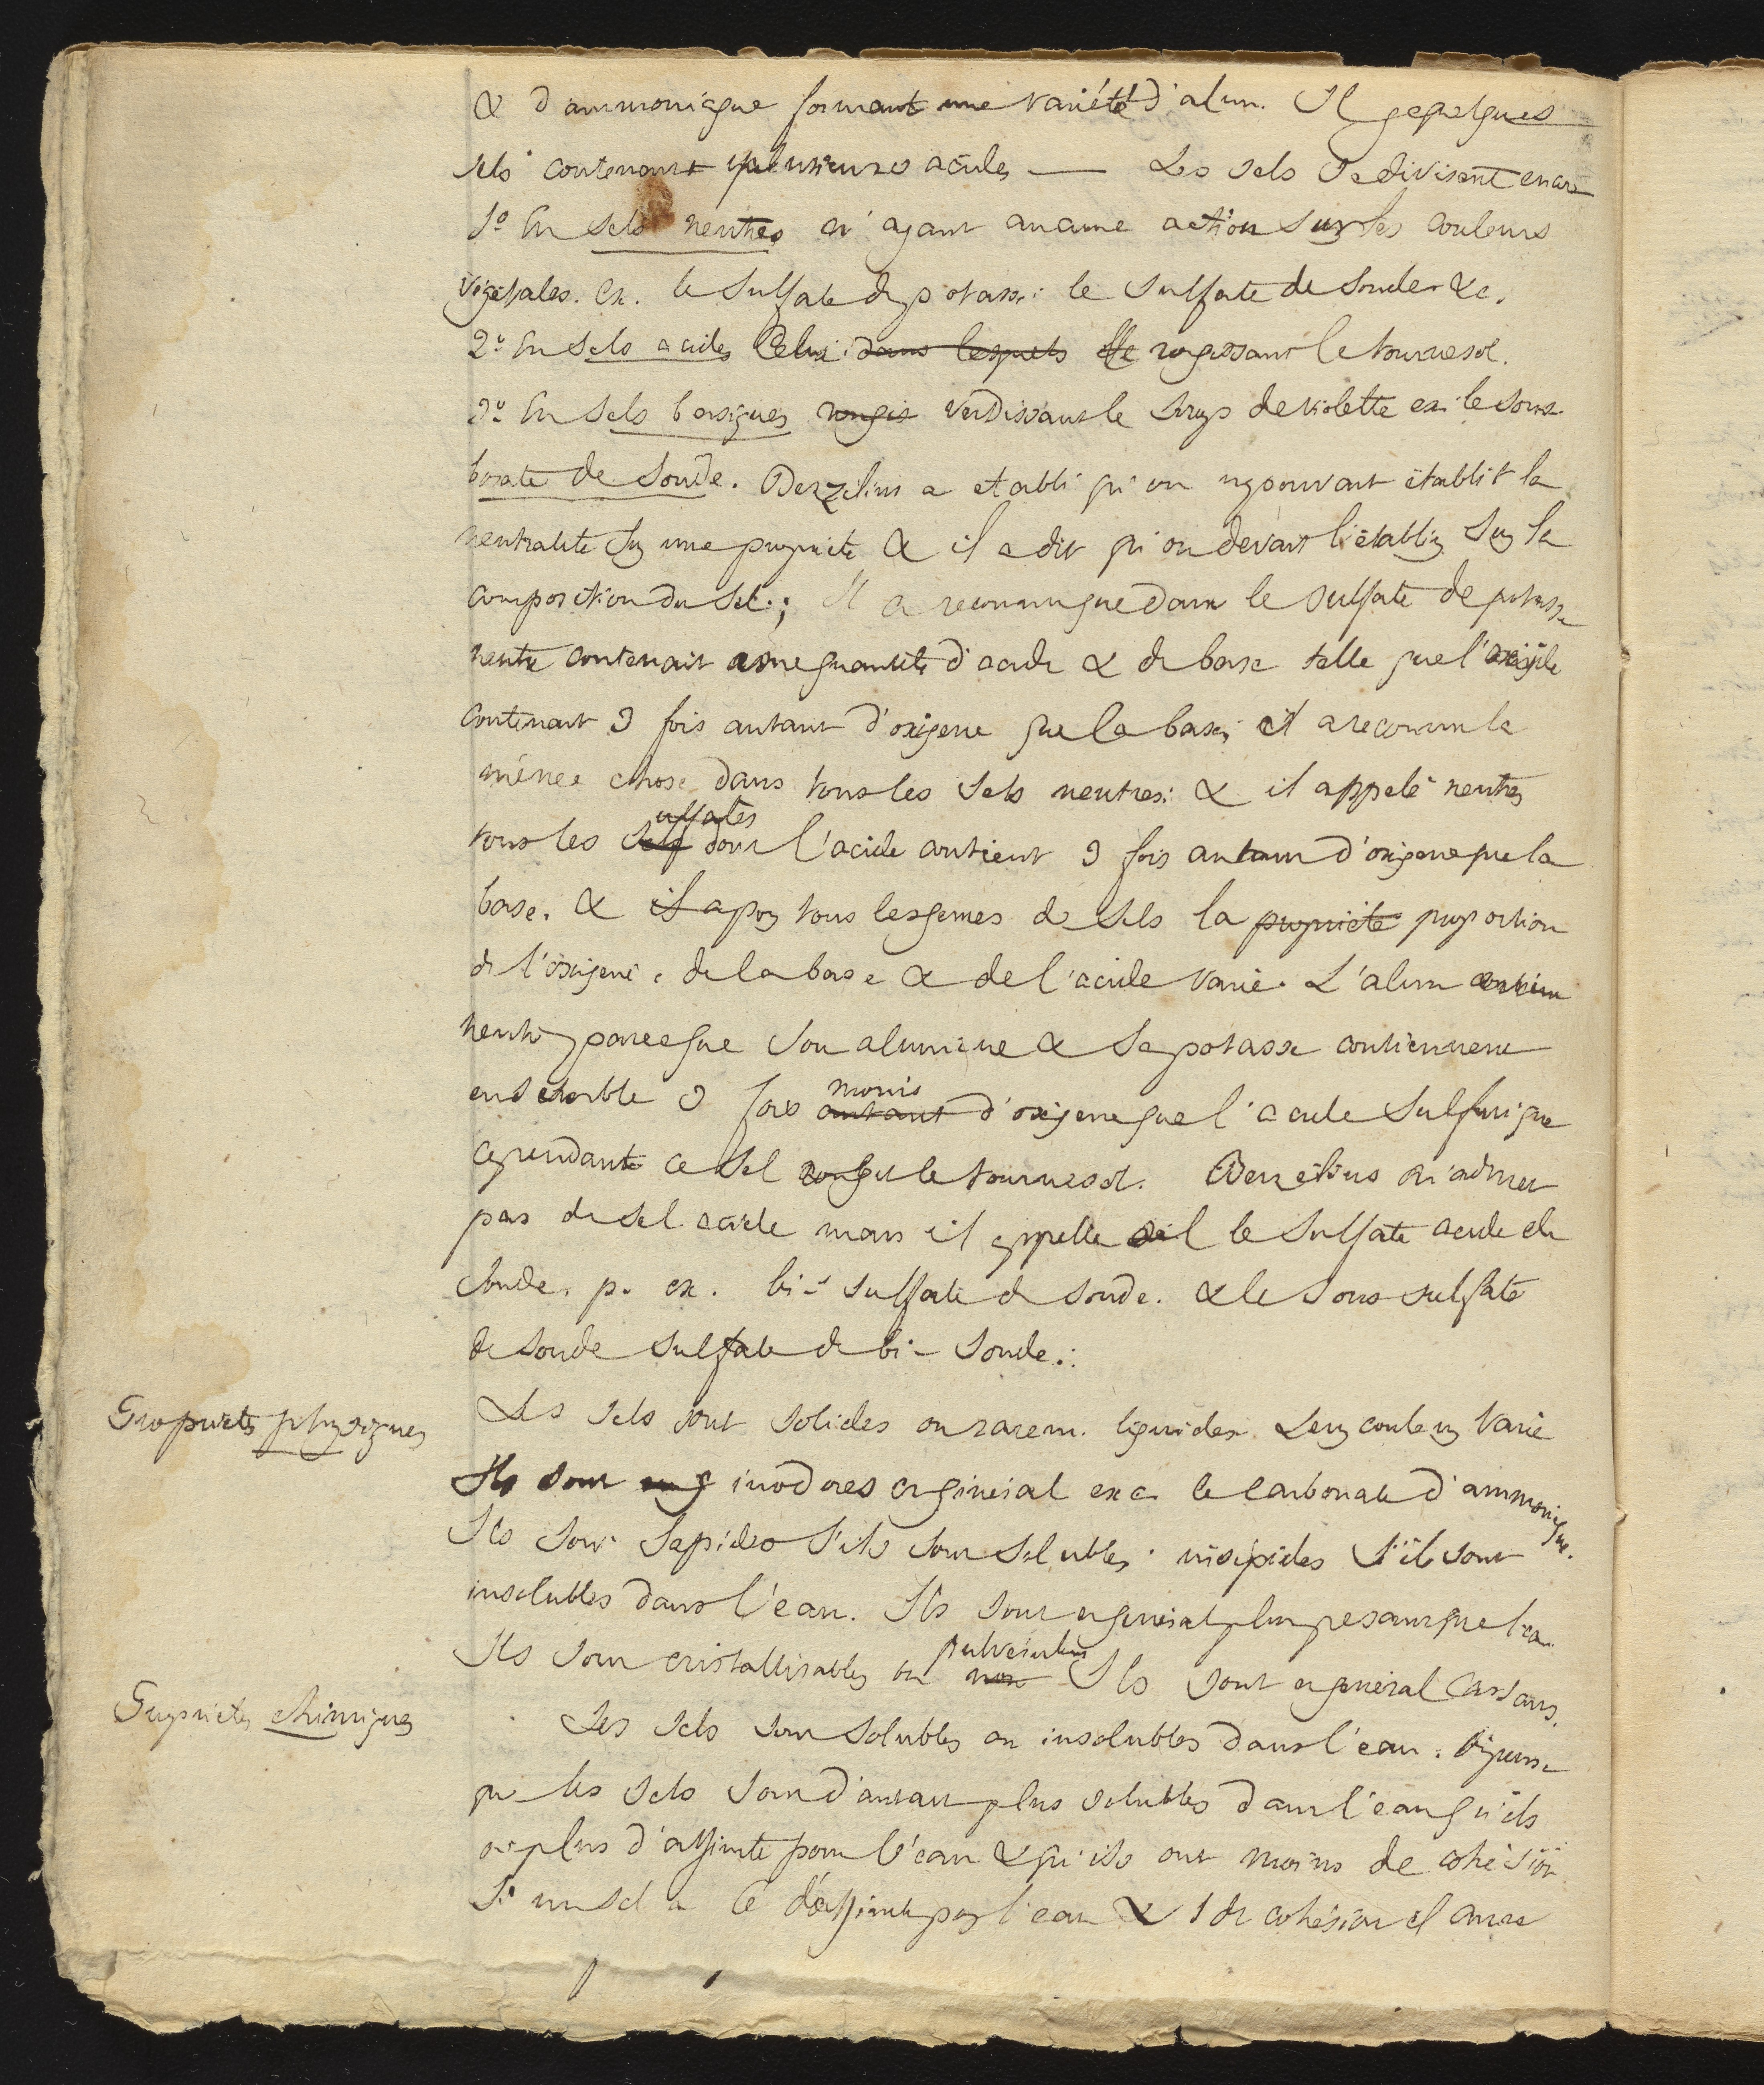 & d'ammoniaque formant une variété d'alun. Il y a quelques
sels contenant plusieurs acides — Les sels se divisent encore
1º En sels neutres n'ayant aucune action sur les couleurs
végétales. ex. le sulfate de potasse le sulfate de soude &c.
2º En sels acides Celui dans lesquels rougissant le tournesol.
3º En sels basiques rougis verdissant le sirop de violette ex. le sous
borate de soude. Berzelius a etabli qu'on ne pouvait établir la
neutralité sur une propriete & il a dit qu'on devait l'établir sur la
composition du sel.; Il a reconnu que dans le sulfate de potasse
neutre contenait une quantité d'acide & de base telle que l'acide
contenait 3 fois autant d'oxigene que la base, il a reconnu la
même chose dans tous les sels neutres: & il appelé neutres
ulfates
tous les sels dont l'acide contient 3 fois autant d'oxigene que la
base. & il a pour tous les genres de sels la propriété proportion
de l'oxigene de la base & de l'acide varie. L'alun
neutre parceque son alumine & sa potasse contiennent
ensemble 3 fois autant d'oxigene que l'acide sulfurique
moins
cependant ce sel rougit le tournesol. Berzelius n'admet
pas de sel acide mais il appelle le sulfate acide de
soude. p. ex. bi-sulfate de soude. & le sous sulfate
de soude sulfate de bi-soude.
Propriétés physiques
Les sels sont solides ou rarem. liquides. Leur couleur varie
Ils sont inodores en général exc. le carbonate d'ammoniaque.
Ils sont sapides s'ils sont solubles. insipides s'ils sont
insolubles dans l'eau. Ils sont en général plus pesants que l'eau
pulvérulens
Ils sont cristallisables ou non Ils sont en général cassans.
Propriétés chimiques
Les sels sont solubles ou insolubles dans l'eau.
que les sels sont d'autant plus solubles dans l'eau qu'ils
ont plus d'affinité pour l'eau & qu'ils ont moins de cohésion
Si un sel a 6 d'affinité pour l'eau & 1 de cohésion il aura